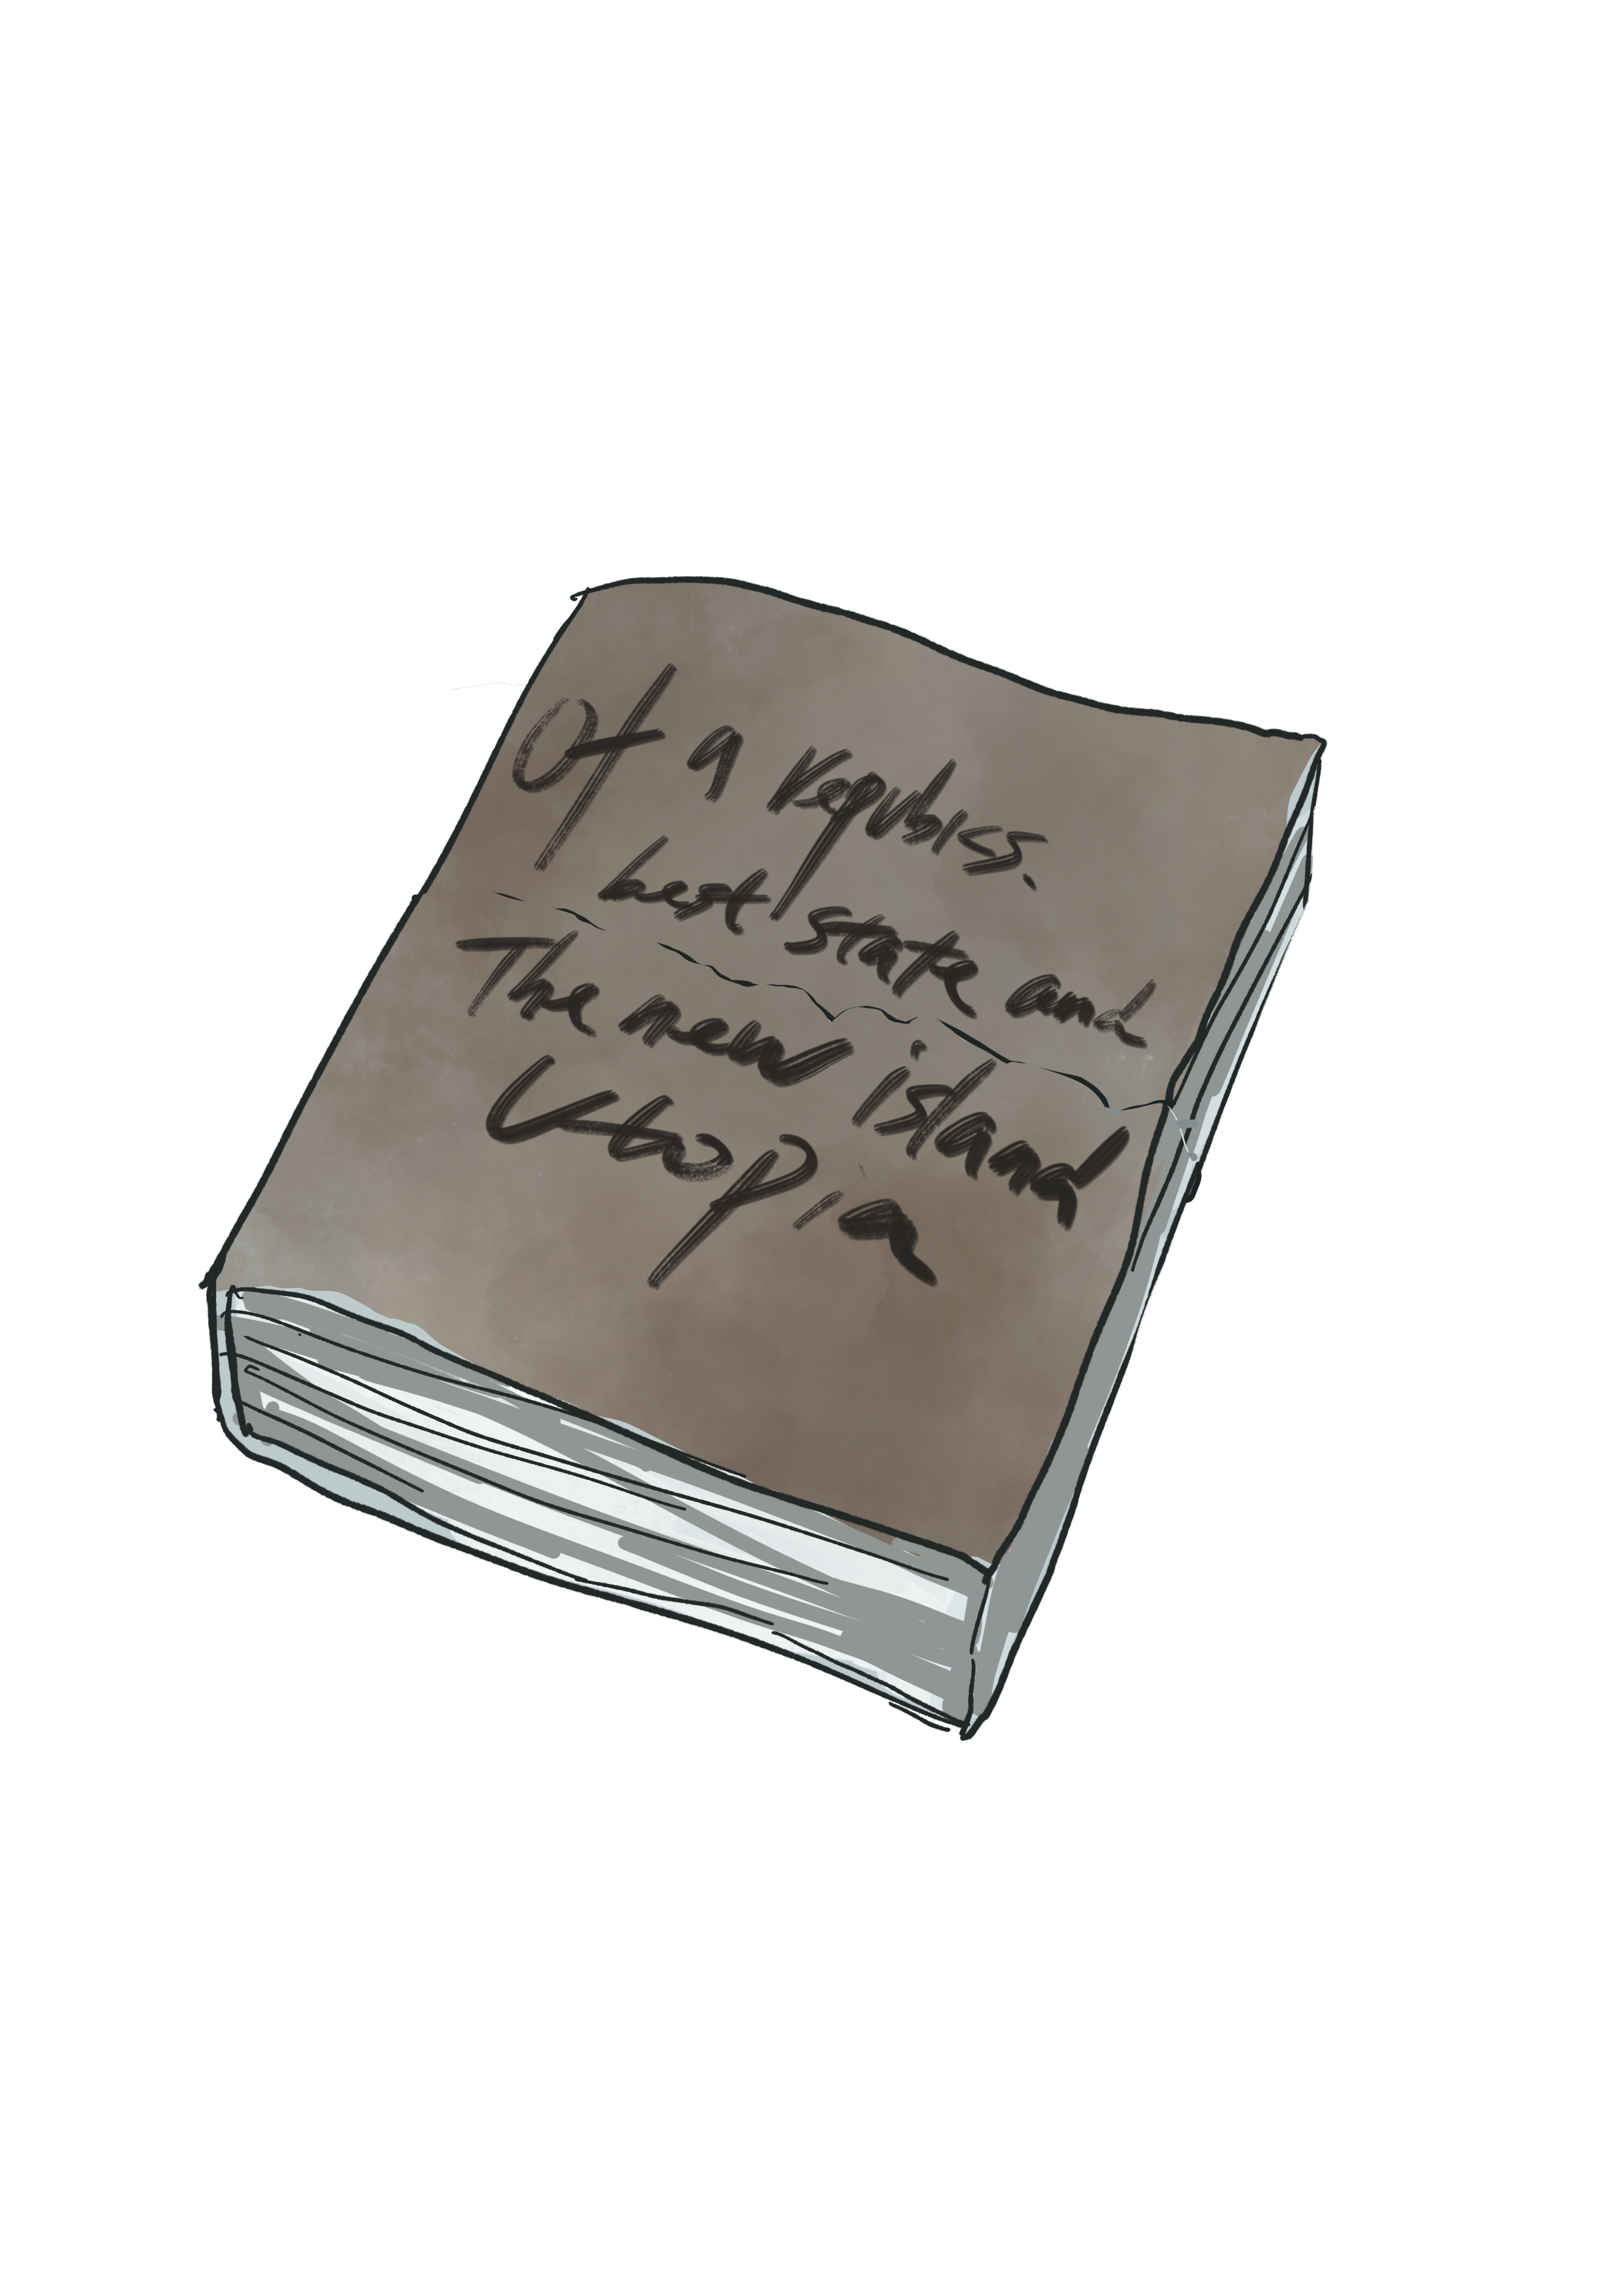 Of a republics.
best state and
The new island
Utopia